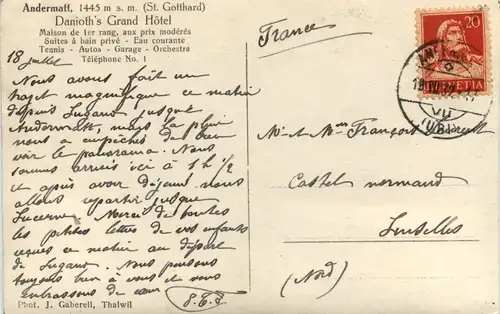 Andermatt, 1445 m s. m. (St. Gotthard)
Danioth's Grand Hôtel
Maison de 1er rang, aux prix modérés
Suites à bain privé - Eau courante
Tennis - Autos - Garage - Orchestre
Téléphone No. 1
18 juillet
Nous avons fait un
trajet magnifique ce matin
depuis Lugano jusque
Andermatt, mais la pluie
nous a empêchés de bien
voir le panorama. Nous
sommes arrivés ici à 1h 1/2
et après avoir déjeuné nous
allons repartir jusque
Lucerne. Merci de toutes
les petites lettres de vos enfants
reçues ce matin au départ
de Lugano. Nous pensons
toujours bien à vous et vous
embrassons de cœur
Phot. J. Gaberell, Thalwil
France
20
HELVETIA
(URI)
M. et Mme François
Castel normand
(Nord)